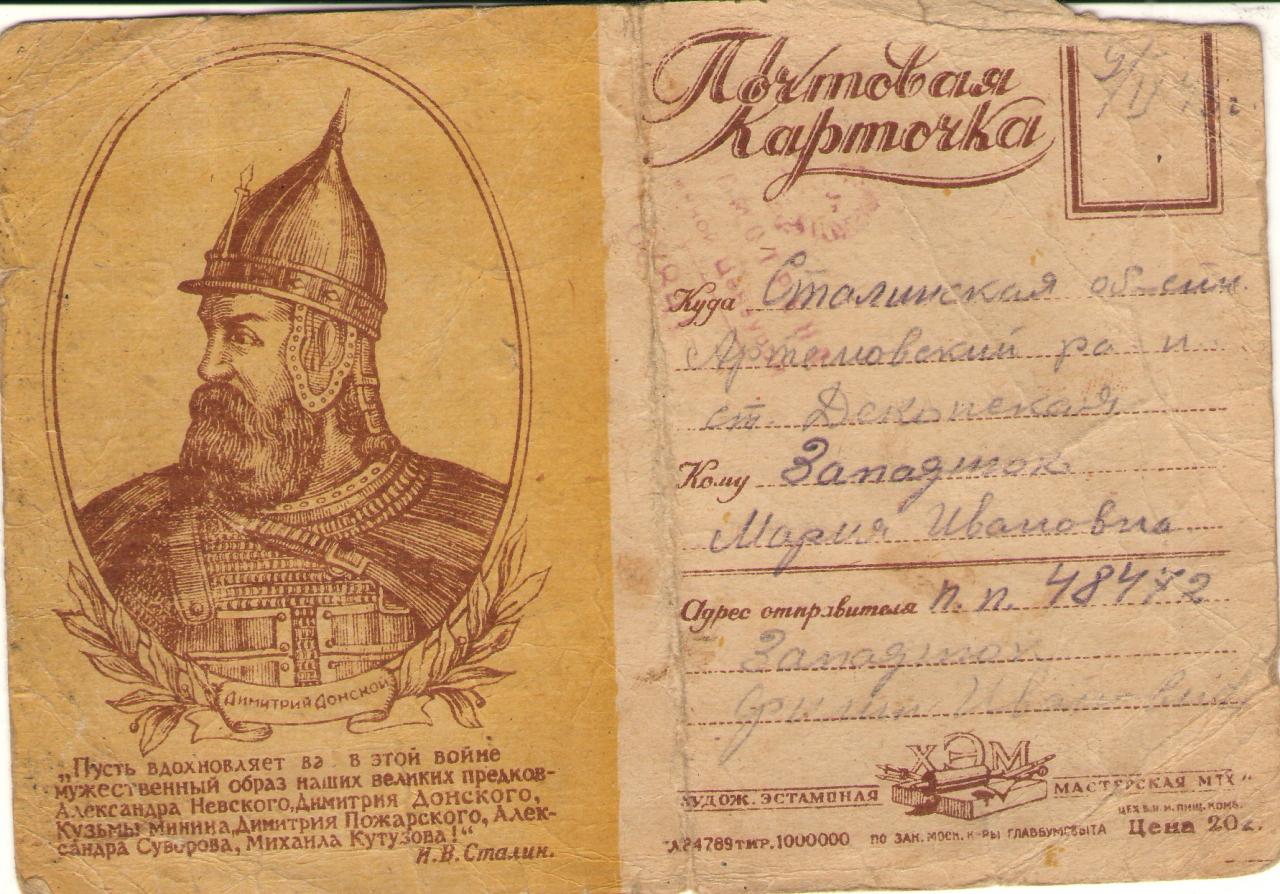 Димитрий Донской
„Пусть вдохновляет ва в этой войне
мужественный образ наших великих предков-
Александра Невского, Димитрия Донского,
Кузьмы Минина, Димитрия Пожарского, Алек-
сандра Суворова, Михаила Кутузова!“
И.В. Сталин.
Почтовая
Карточка
Куда Сталинская
Артемовский
ст.
Кому Западнюк
Мария Ивановна
Адрес отправителя п.п. 48472
Западнюк
ХЭМ
ХУДОЖ. ЭСТАМПНАЯ МАСТЕРСКАЯ МТХ"
ЦЕХ В.И.И. ПИЩ. КОМБ.
Л24789 тир. 1000000 ПО ЗАК. МОСК. К-РЫ ГЛАВБУМСБЫТА Цена 20к.